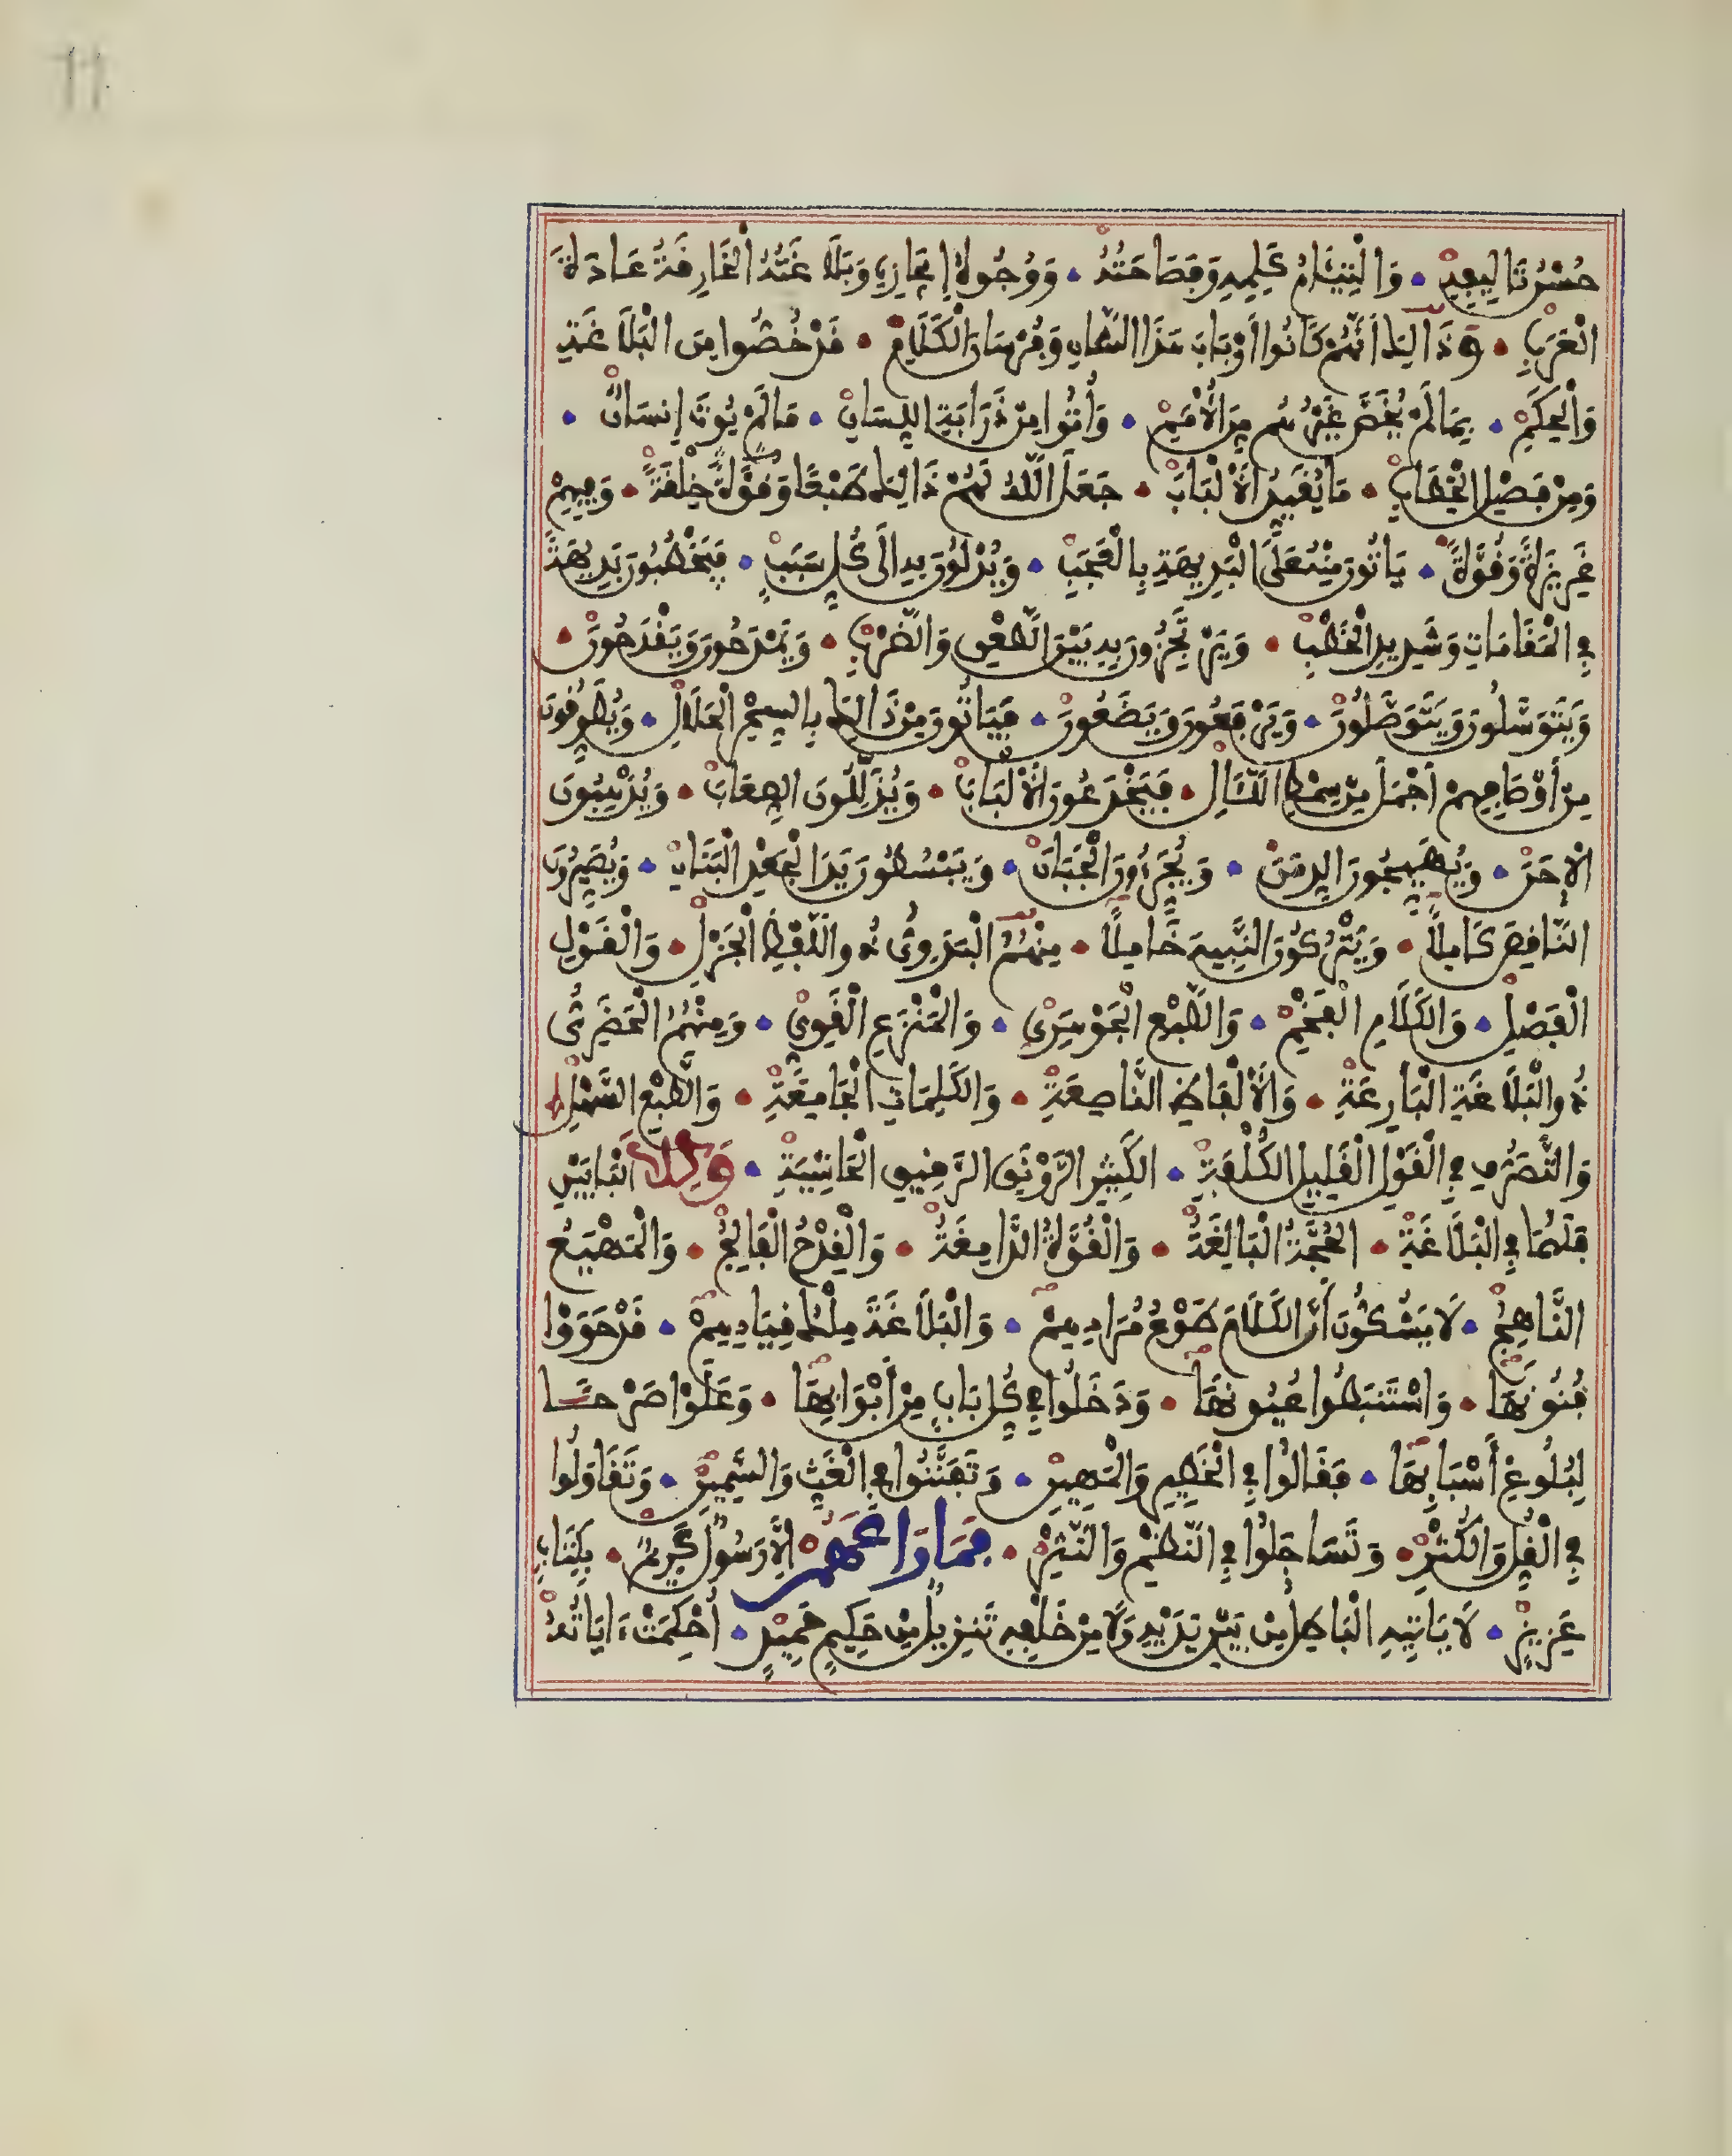 حُسْنُ تَالِيفِهِ • وَالْتِئَامُ كَلِمِهِ وَفَصَاحَتُهُ • وَوُجُوهُ إِيجَازِهِ وَبَلَاغَتُهُ الْخَارِقَةُ عَادَةَ
الْعَرَبِ • وَذَالِكَ أَنَّهُمْ كَانُوا أَرْبَابَ هَذَا الشَّانِ وَفُرْسَانَ الْكَلَامِ • قَدْ خُصُّوا مِنَ الْبَلَاغَةِ
وَالْحِكَمِ • بِمَا لَمْ يُخَصَّ غَيْرُهُم مِنَ الْأُمَمِ • وَأُوتُوا مِنْ ذَرَابَةِ اللِّسَانِ • مَا لَمْ يُوتَ إِنسَانٌ •
وَمِنْ فَصْلِ الْخِطَابِ • مَا يُقَيِّدُ الْأَلْبَابَ • جَعَلَ اللَّهُ لَهُمْ ذَالِكَ طَبْعًا وَقُوَّةً خِلْقَةً • وَفِيهِمْ
غَرِيزَةً وَقُوَّةً • يَاتُونَ مِنْهُ عَلَى الْبَدِيهَةِ بِالْعَجَبِ • وَيُدْلُونَ بِهِ إِلَى كُلِّ سَبَبٍ • فَيَخْطُبُونَ بَدِيهَةً
فِي الْمَقَامَاتِ وَشَدِيدِ الْخَطْبِ • وَيَرْتَجِزُونَ بِهِ بَيْنَ الطَّعْنِ وَالضَّرْبِ • وَيَمْدَحُونَ وَيَقْدَحُونَ •
وَيَتَوَسَّلُونَ وَيَتَوَصَّلُونَ • وَيَرْفَعُونَ وَيَضَعُونَ • فَيَاتُونَ مِنْ ذَالِكَ بِالسِّحْرِ الْحَلَالِ • وَيُطَوِّقُونَ
مِنْ أَوْصَافِهِمْ أَجْمَلَ مِنْ سِمْطِ اللَّئَالِ • فَيَخْدَعُونَ الْأَلْبَابَ • وَيُذَلِّلُونَ الصِّعَابَ • وَيُذْهِبُونَ
الْإِحَنَ • وَيُهَيِّجُونَ الدِّمَنَ • وَيُجَرِّءُونَ الْجَبَانَ • وَيَبْسُطُونَ يَدَ الْجَعْدِ الْبَنَانِ • وَيُصَيِّرُونَ
النَّاقِصَ كَامِلًا • وَيَتْرُكُونَ النَّبِيهَ خَامِلًا • مِنْهُمُ الْبَدَوِيُّ ذُو اللَّفْظِ الْجَزْلِ • وَالْقَوْلِ
الْفَصْلِ • وَالْكَلَامِ الْفَخْمِ • وَالطَّبْعِ الْجَوْهَرِيِّ • وَالْمَنْزَعِ الْقَوِيِّ • وَمِنْهُمُ الْحَضَرِيُّ
ذُو الْبَلَاغَةِ الْبَارِعَةِ • وَالْأَلْفَاظِ النَّاصِعَةِ • وَالْكَلِمَاتِ الْجَامِعَةِ • وَالطَّبْعِ السَّهْلِ
وَالتَّصَرُّفِ فِي الْقَوْلِ الْقَلِيلِ الْكُلْفَةِ • الْكَثِيرِ الرَّوْنَقِ الرَّقِيقِ الْحَاشِيَةِ • وَكِلَا الْبَابَيْنِ
فَلَهُمَا فِي الْبَلَاغَةِ • الْحُجَّةُ الْبَالِغَةُ • وَالْقُوَّةُ الدَّامِغَةُ • وَالْقِدْحُ الْفَالِجُ • وَالْمَهْيَعُ
النَّاهِجُ • لَا يَشُكُّونَ أَنَّ الْكَلَامَ طَوْعُ مُرَادِهِمْ • وَالْبَلَاغَةَ مِلْكُ قِيَادِهِمْ • قَدْ حَوَوْا
فُنُونَهَا • وَاسْتَنبَطُوا عُيُونَهَا • وَدَخَلُوا فِي كُلِّ بَابٍ مِنْ أَبْوَابِهَا • وَعَلَوْا صَرْحًا
لِبُلُوغِ أَسْبَابِهَا • فَقَالُوا فِي الْخَطِيرِ وَالْمَهِينِ • وَتَفَنَّنُوا فِي الْغَثِّ وَالسَّمِينِ • وَتَقَاوَلُوا
فِي الْقُلِّ وَالْكُثْرِ • وَتَسَاجَلُوا فِي النَّظْمِ وَالنَّثْرِ • فَمَا رَاعَهُمْ إِلَّا رَسُولٌ كَرِيمٌ • بِكِتَابٍ
عَزِيزٍ • لَا يَاتِيهِ الْبَاطِلُ مِنْ بَيْنِ يَدَيْهِ وَلَا مِنْ خَلْفِهِ تَنزِيلٌ مِنْ حَكِيمٍ حَمِيدٍ • أُحْكِمَتْ ءَايَاتُهُ